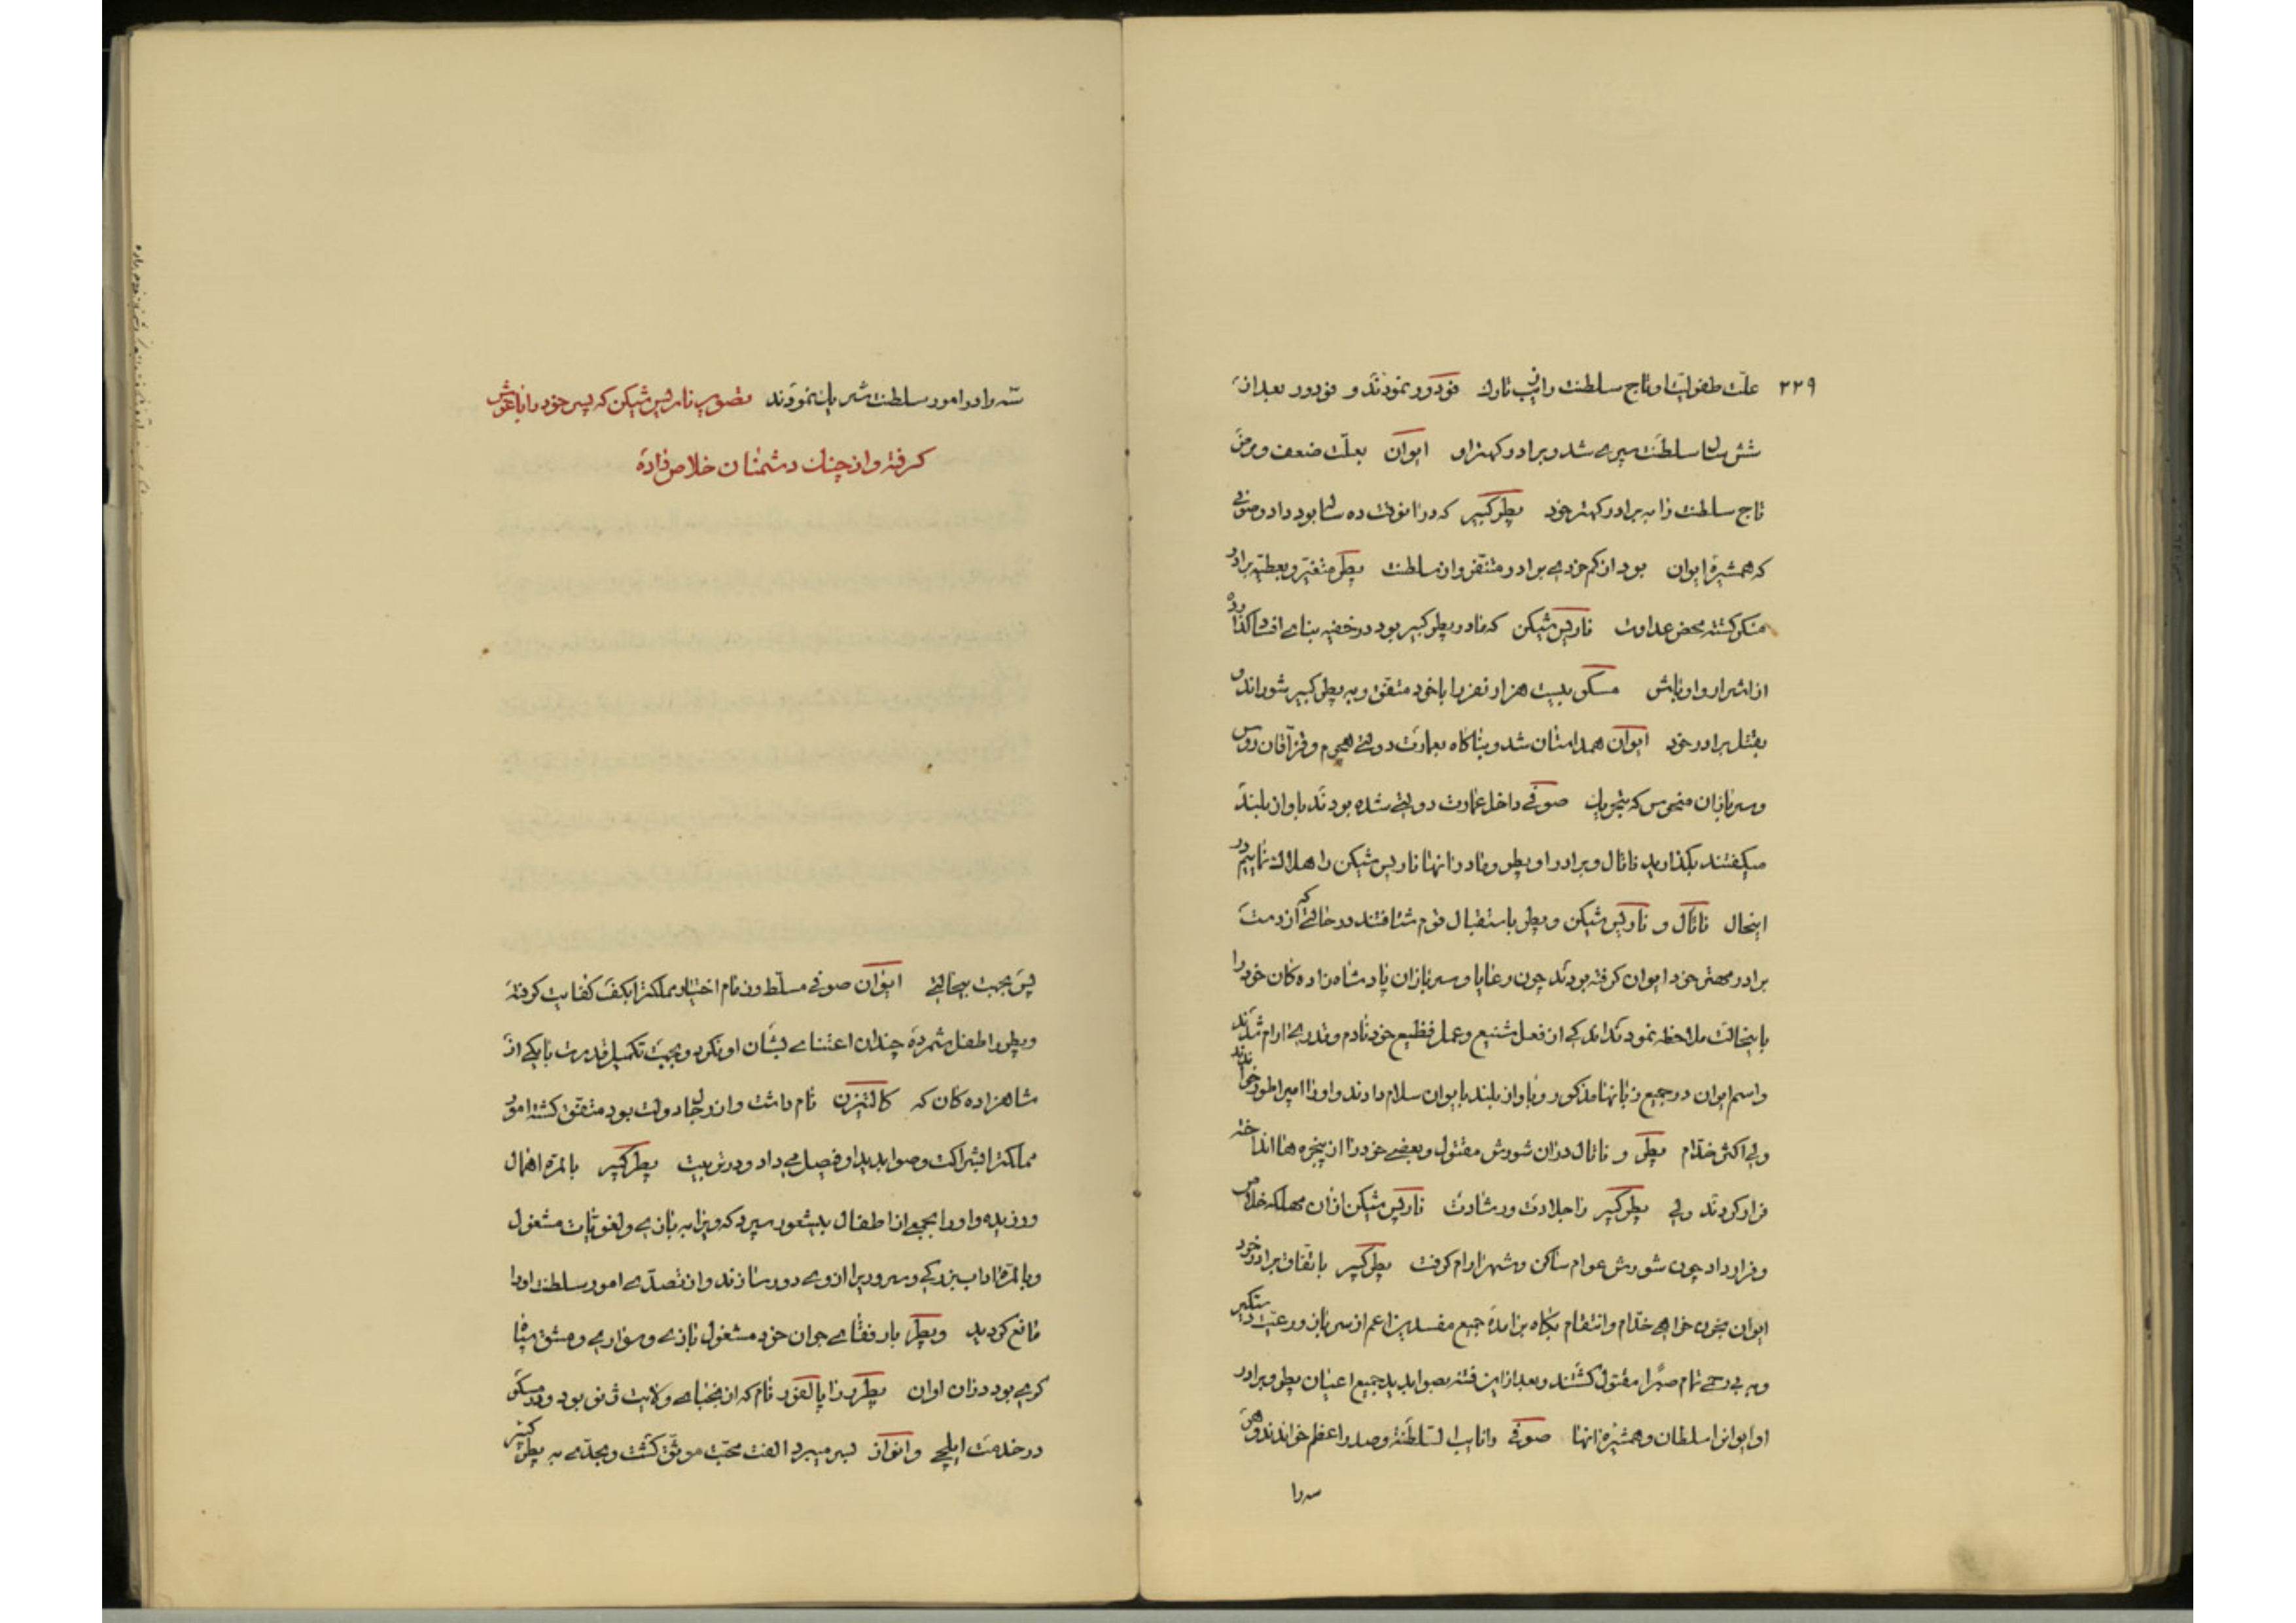 ۲۲۹
علّت طفولیت او تاج سلطنت را زیب تارک فودور نمودند و فودور بعد از
شش سال سلطنت سپری شد و برادر کهتر او ایوان بعلّت ضعف و مرض
تاج سلطنت را به برادر کهتر خود پطر کبیر که در آنوقت ده ساله بود داد و صوفی
که همشیرۀ ایوان بود از کم خردی برادر متنفر و از سلطنت پطر متغیر و بعطیّه برادر
منکر گشته محض عداوت ناریس شیکن که مادر پطر کبیر بود در خفیه بنای افساد گذارده
از اشرار و اوباش مسکو بیست هزار نفر را با خود متفق و به پطر کبیر شوراند و
بقتل برادر خود ایوان همداستان شد و بناگاه بعمارت دولتی هجوم و قزاقان روس
و سربازان منحوس که بتحریک صوفی داخل عمارت دولتی شده بودند باواز بلند
میگفتند بگذارید ناتال و برادر او پطر و مادر آنها ناریس شیکن را هلاک نماییم در
اینحال ناتال و ناریس شیکن و پطر باستقبال قوم شتافتند در حالتی که از دست
برادر مهتر خود ایوان گرفته بودند چون رعایا و سربازان پادشاه زاده کان خود را
باینحالت ملاحظه نمودند اندکی از فعل شنیع و عمل فظیع خود نادم و قدری آرام شدند
و اسم ایوان در جمیع زبانها مذکور و باواز بلند بایوان سلام دادند و او را امپراطور خواندند
ولی اکثر خدّام پطر و ناتال در آن شورش مقتول و بعضی خود را از پنجره ها انداخته
فرار کردند ولی پطر کبیر را جلادت و رشادت ناریس شیکن از آن مهلکه خلاص
و قرار داد چون شورش عوام ساکن و شهر آرام گرفت پطر کبیر باتفاق برادر خود
ایوان بخون خواهی خدّام و انتقام بگاه برآمده جمیع مفسدین اعم از سرباز و رعیّت دستگیر
و به بی رحمی تمام صبراً مقتول گشتند و بعد از این فتنه بصوابدید جمیع اعیان پطر و برادر
او ایوان را سلطان و همشیرۀ آنها صوفی را نایب السّلطنه و صدر اعظم خواندند و هر
سه را
سه را در امور سلطنت شریک نمودند تصویر ناریس شیکن که پسر خود را باغوش
گرفته و از چنک دشمنان خلاص داده
پس بجهت بیحالتی ایوان صوفی مسلّط و زمام اختیار مملکت را بکف کفایت گرفته
و پطر را طفل شمرده چندان اعتنائی بشأن او نکرد و بجهت تکمیل قدرت با یکی از
شاهزاده کان که کالتیزن نام داشت و از رجال دولت بود متفق گشته امور
مملکت را بشراکت و صوابدید او فیصل می داد و در تربیت پطر کبیر بالمرّه اهمال
ورزیده و او را بجمعی از اطفال بیشعور سپرد که ویرا به بازی و لغویّات مشغول
و بالمرّه آداب بزرگی و سروری را از وی دور سازند و از تصدّی امور سلطنت او را
مانع گردید و پطر با رفقای جوان خود مشغول بازی و سواری و مشق سپاه
گری بود در آن اوان پطر را با لفور نام که از نجبای ولایت ژنو بود و در مسکو
در خدمت ایلچی دانمارک بسر میبرد الفت محبت موثق گشت و بحدّی به پطر کبیر